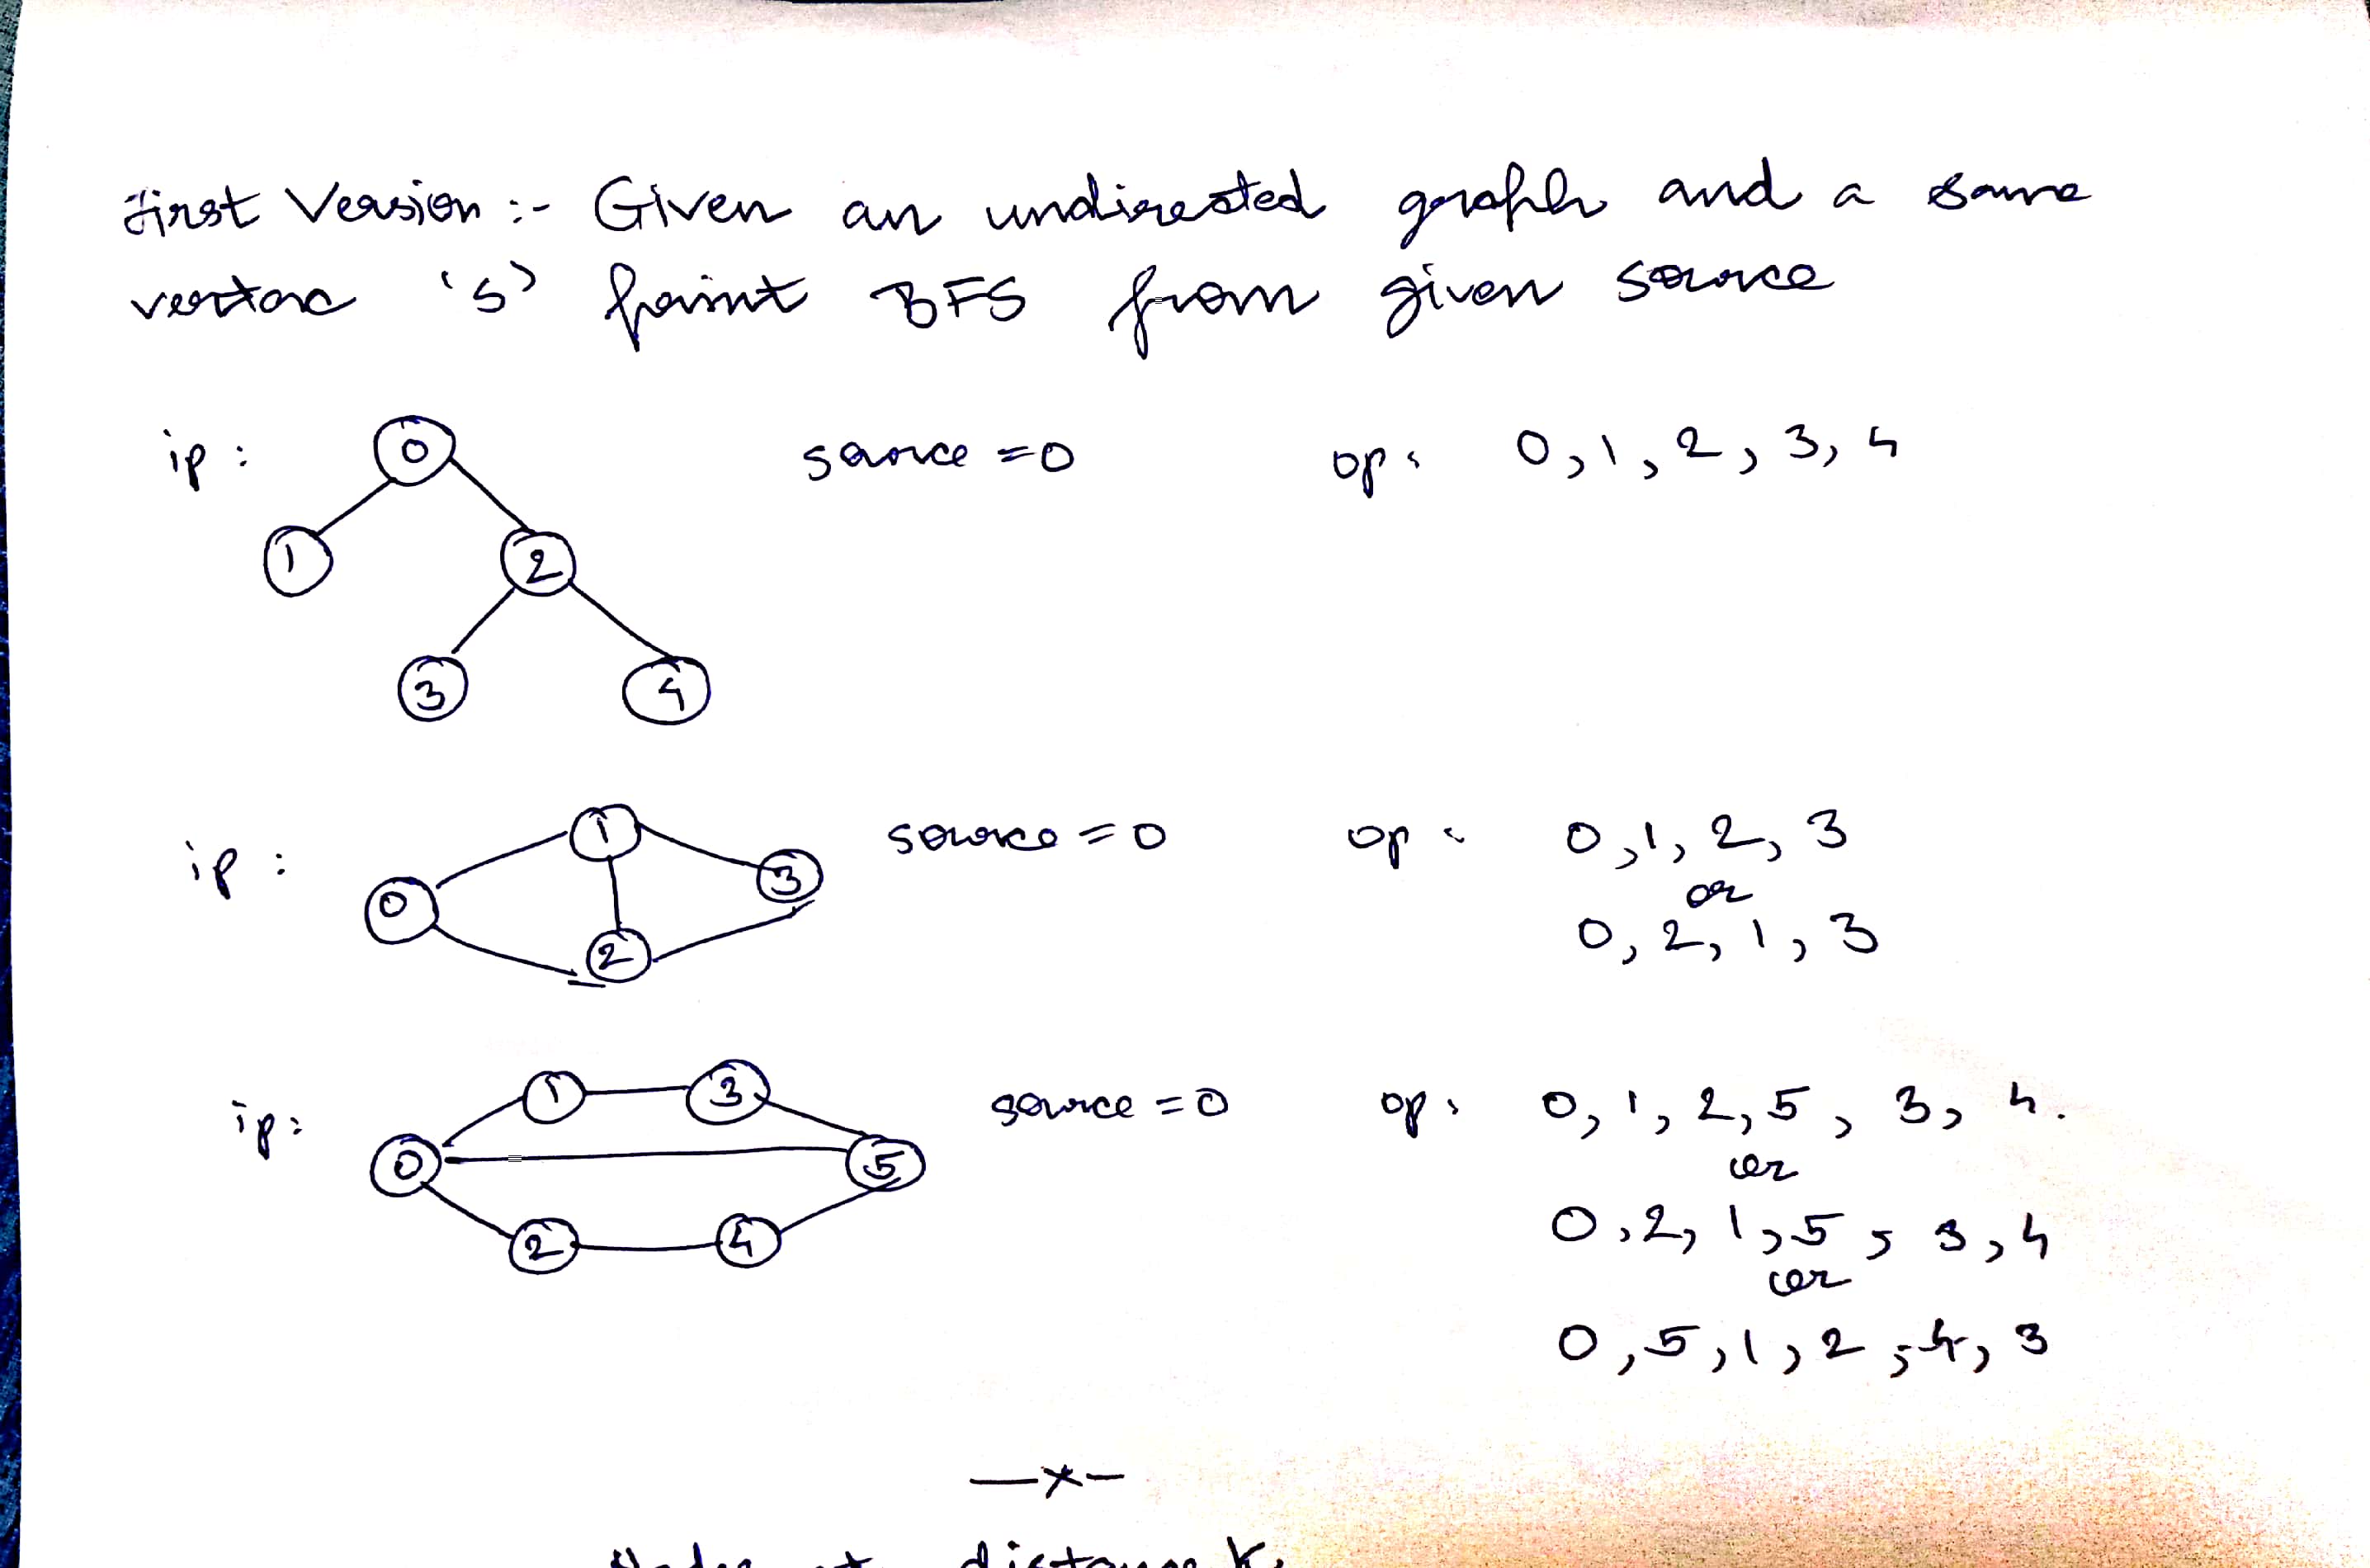 First Version :- Given an undirected graph and a source
vertex 's' print BFS from given source
ip :
0
1
2
3
4
source = 0
op : 0, 1, 2, 3, 4
ip :
0
1
2
3
source = 0
op : 0, 1, 2, 3
or
0, 2, 1, 3
ip :
0
1
3
5
2
4
source = 0
op : 0, 1, 2, 5, 3, 4.
or
0, 2, 1, 5, 3, 4
or
0, 5, 1, 2, 4, 3
—x—
distance K